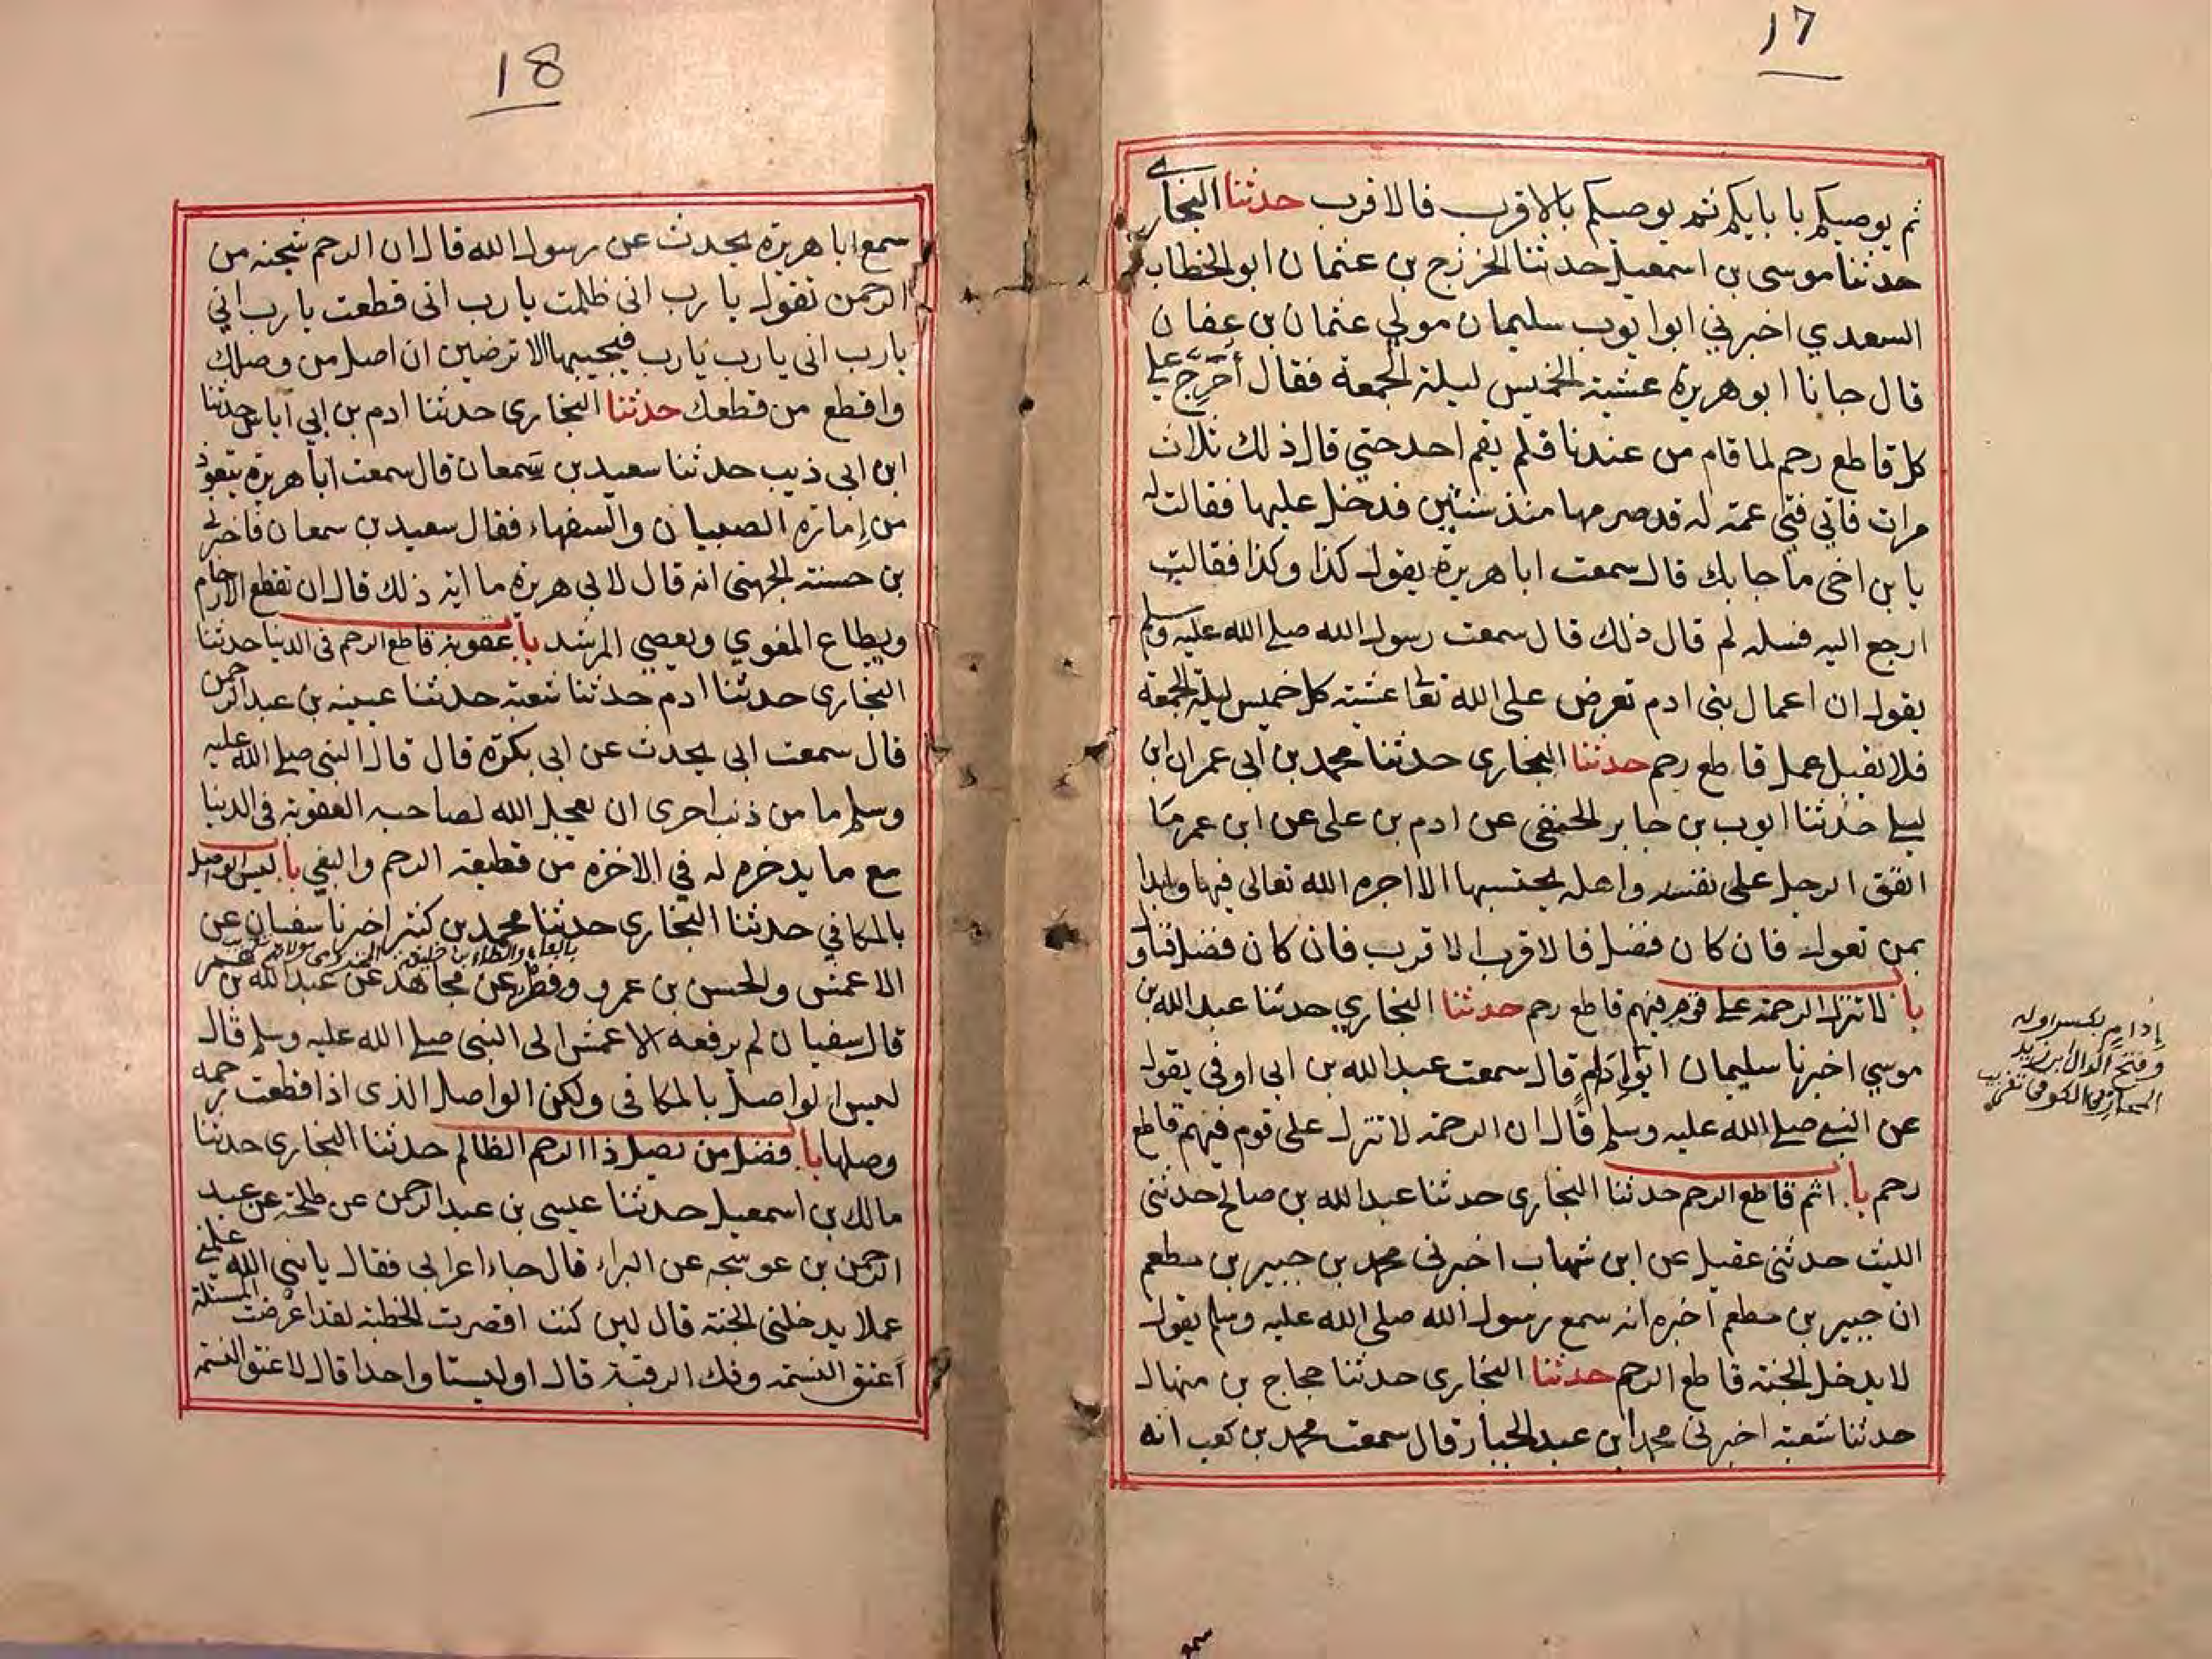 17
ثم يوصيكم با بايكم ثم يوصيكم بالاقرب فالاقرب حدثنا البخارى
حدثنا موسى بن اسمعيل حدثنا الخزرج بن عثمان ابو الخطاب
السعدي اخبرني ابوا يوب سليمان مولي عثمان بن عفان
قال جانا ابو هريرة عشية الخميس ليلة الجمعة فقال أحَرِّج على
كل قاطع رحم لما قام من عندنا فلم يقم احد حتي قال ذلك ثلاث
مرات فاتي فتي عمة له قد صرمها منذ سنتين فدخل عليها فقالت له
يا بن اخى ما جا بك قال سمعت ابا هريرة يقول كذا وكذا فقالت
ارجع اليه فسله لم قال ذلك قال سمعت رسول الله صلى الله عليه وسلم
يقول ان اعمال بنى ادم تعرض على الله تعا عشية كل خميس ليلة الجمعة
فلا يقبل عمل قاطع رحم حدثنا البخارى حدثنا محمد بن ابي عمران ابن
ليلى حدثنا ايوب بن جابر الحنفى عن ادم بن على عن ابن عمر ما
انفق الرجل على نفسه واهله يحتسبها الا اجره الله تعالى فيها وابدا
بمن تعول فان كان فضل فالاقرب الاقرب فان كان فضل فناول
باب لا تنزل الرحمة على قوم فيهم قاطع رحم حدثنا البخاري حدثنا عبد الله بن
موسي اخبرنا سليمان ابو إدام قال سمعت عبد الله بن ابى اوفي يقول
عن النبى صلى الله عليه وسلم قال ان الرحمة لا تنزل على قوم فيهم قاطع
رحم باب اثم قاطع الرحم حدثنا البخارى حدثنا عبد الله بن صالح حدثنى
الليث حدثنى عقيل عن ابن شهاب اخبرنى محمد بن جبير بن مطعم
ان جبير بن مطعم اخبره انه سمع رسول الله صلى الله عليه وسلم يقول
لا يدخل الجنة قاطع الرحم حدثنا البخارى حدثنا حجاج بن منهال
حدثنا شعبة اخبرنى محمد ابن عبد الجبار قال سمعت محمد بن كعب انه
إدام بكسر اوله
وفتح الدال ابن زيد
المحاربى الكوفى
سمع
18
سمع ابا هريرة يحدث عن رسول الله قال ان الرحم شجنة من
الرحمن تقول يا رب انى ظلمت يا رب انى قطعت يا رب اني
يا رب انى يا رب يا رب فيجيبها الا ترضين ان اصل من وصلك
واقطع من قطعك حدثنا البخارى حدثنا ادم بن ابي آياس حدثنا
ابن ابى ذيب حدثنا سعيد بن سَمعان قال سمعت ابا هريرة يتعوذ
من إمارة الصبيان والسفهاء فقال سعيد بن سمعان فاخبرنى
بن حسنة الجهنى انه قال لابى هريرة ما اية ذلك قال ان تقطع الارحام
ويطاع المغوي ويعصي المرشد باب عقوبة قاطع الرحم فى الدنيا حدثنا
البخارى حدثنا ادم حدثنا شعبة حدثنا عيينة بن عبد الرحمن
قال سمعت ابى يحدث عن ابى بكرة قال قال النبى صلى الله عليه
وسلم ما من ذنب احرى ان يعجل الله لصاحبه العقوبة فى الدنيا
مع ما يدخره له في الاخرة من قطيعة الرحم والبغي باب ليس الواصل
بالمكافي حدثنا البخارى حدثنا محمد بن كثير اخبرنا سفيان عن
بالفاء والطاء بن خليفة
الاعمش والحسن بن عمرو وفطر عن مجاهد عن عبد الله بن عمر
قال سفيان لم يرفعه الاعمش الى النبى صلى الله عليه وسلم قال
ليس الواصل بالمكافى ولكن الواصل الذى اذا قطعت رحمه
وصلها باب فضل من يصل ذا الرحم الظالم حدثنا البخارى حدثنا
مالك بن اسمعيل حدثنا عيسى بن عبد الرحمن عن طلحة عن عبد
الرحمن بن عوسجه عن البراء قال جاء اعرابى فقال يا نبى الله علمنى
عملا يدخلنى الجنة قال لين كنت اقصرت الخطبة لقد اعرضت المسئلة
أعتق النسمة وفك الرقبة قال اوليستا واحدا قال لا عتق النسمة